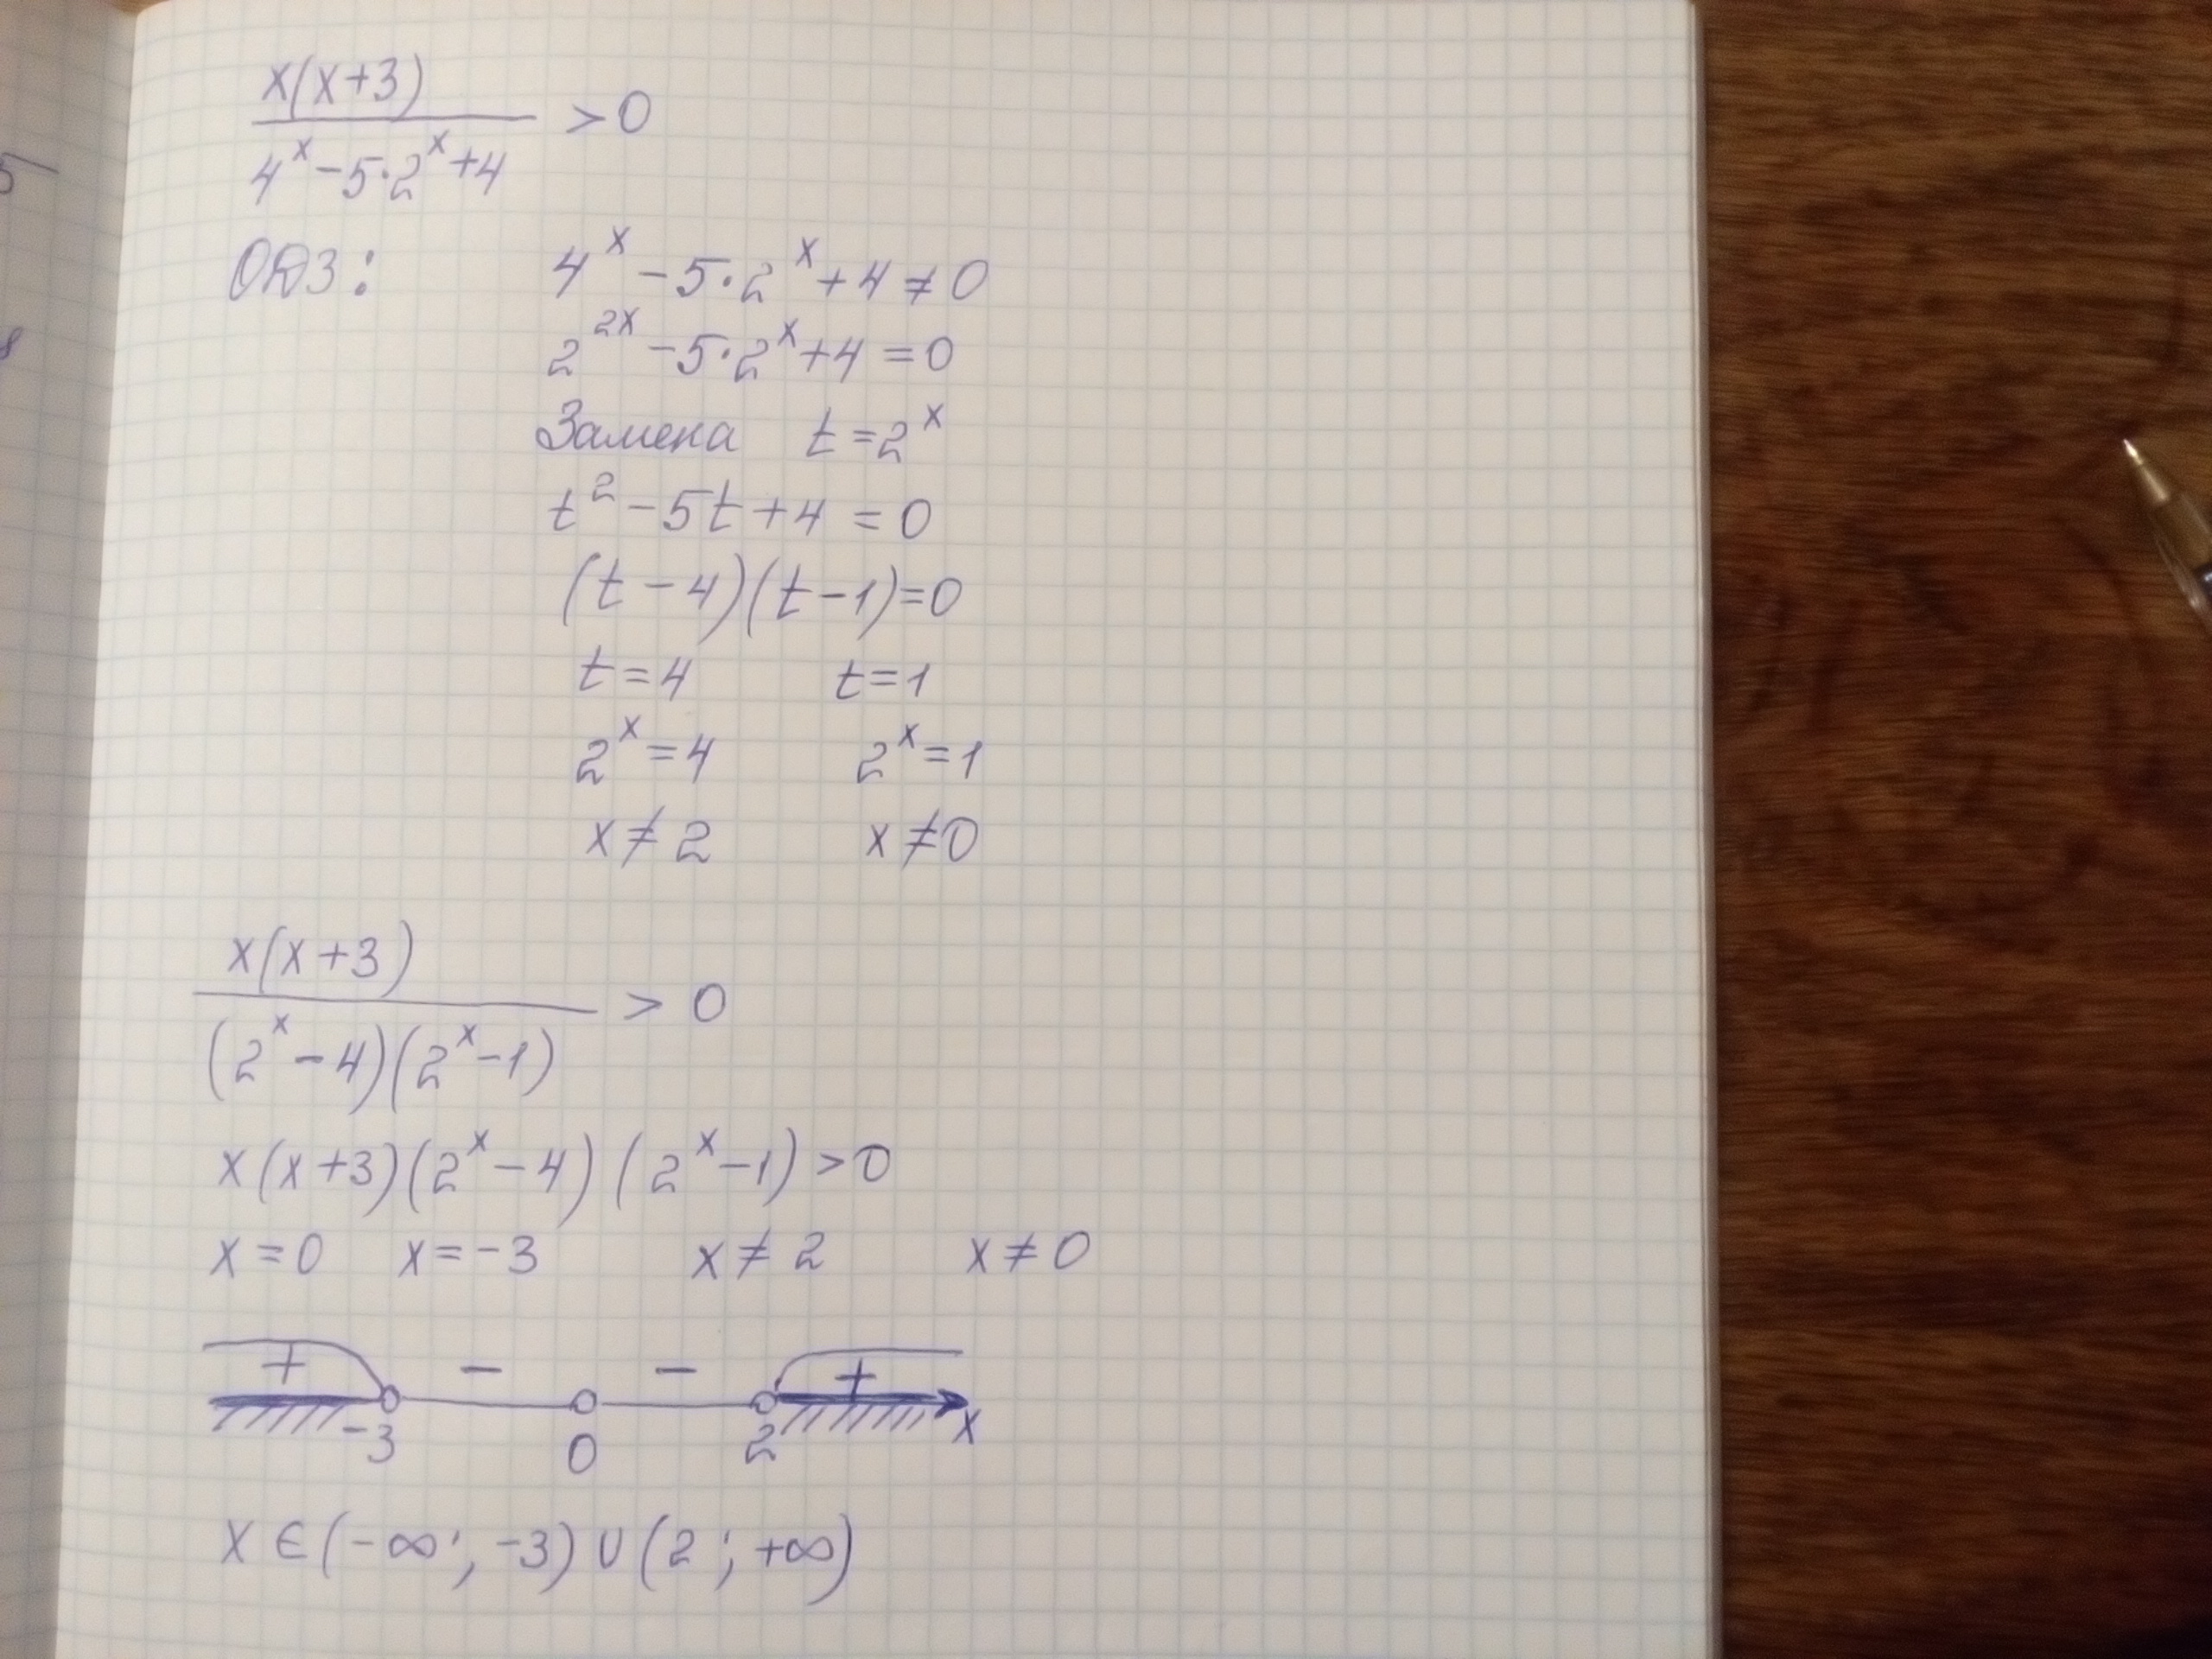 x(x+3)
/ 4^x-5·2^x+4 >0
ОДЗ: 4^x-5·2^x+4≠0
2^2x-5·2^x+4=0
Замена t=2^x
t^2-5t+4=0
(t-4)(t-1)=0
t=4 t=1
2^x=4 2^x=1
x≠2 x≠0
x(x+3)
/ (2^x-4)(2^x-1) >0
x(x+3)(2^x-4)(2^x-1)>0
x=0 x=-3 x≠2 x≠0
+ - - +
-3 0 2 x
x∈(-∞;-3)∪(2;+∞)